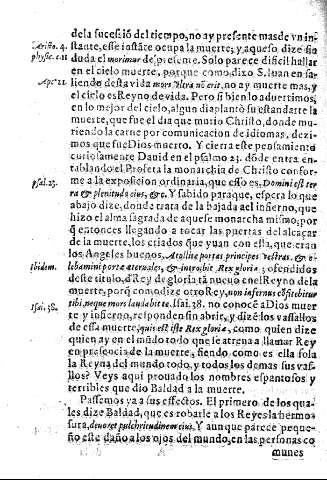 dela sucessiõ del tiempo, no ay presente mas de vn in-
Ariſto. 4. phyſic. t.11
ſtante, eſſe inſtãte ocupa la muerte; y aqueſo dize ſin
duda el morimur de preſente. Solo parece dificil hallar
en el cielo muerte, porque como dizo S. Iuan en ſa-
Apc. 21.
liendo deſta vida mors vltra nõ erit, no ay muerte mas, y
el cielo es Reyno de vida. Pero ſi bien lo aduertimos,
en lo mejor del cielo, algun dia plantò ſu eſtandarte la
muerte, que fue el dia que murio Chriſto, donde mu-
riendo la carne por comunicacion de idiomas, dezi-
mos que fue Dios muerto. Y cierra eſte penſamiento
curioſamente Dauid en el pſalmo 23. dõde entra en-
tablando el Profeta la monarchia de Chriſto confor-
me a la expoſicion ordinaria, que eſſo es, Domini eſt ter
pſal. 23.
ra & plenitudo eius, &c. Y ſabido para que, eſpera lo que
abajo dize, donde trata de la bajada al infierno, que
hizo el alma ſagrada de aqueſe monarcha miſmo; por
q̃ entonces llegando a tocar las puertas del alcaçar
de la muerte, los criados que yuan con ella, que eran
los Angeles buenos, Atollite portas principes veſtras, & e-
Ibidem.
lebamini portæ æternales, & introibit Rex gloriæ; ofendidos
deſte titulo, d̃ Rey de gloria tã nueuo en el Reyno de la
muerte, porq̃ como dize otro Rey, non infernus cõfitebitur
Iſai. 38.
tibi, neque mors laudabit te. Iſai. 38. no conocẽ a Dios muer
te y infierno, reſponden ſin abrir, y dizẽ los vaſallos
de eſſa muerte, quis eſt iſte Rex gloriæ, como quien dize
quien ay en el mũdo todo que ſe atreua a llamar Rey
en preſencia de la muerte, ſiendo como es ella ſola
la Reyna del mundo todo, y todos los demas ſus vaſ-
ſallos? Veys aqui prouados los nombres eſpantoſos y
terribles que dio Baldad a la muerte.
Paſſemos ya a ſus efectos. El primero de los qua-
les dize Baldad, que es robarle a los Reyes la hermo-
ſura, deuoret pulchritudinem eius. Y aunque parece peque-
ño eſte daño a los ojos del mundo, en las perſonas co
munes